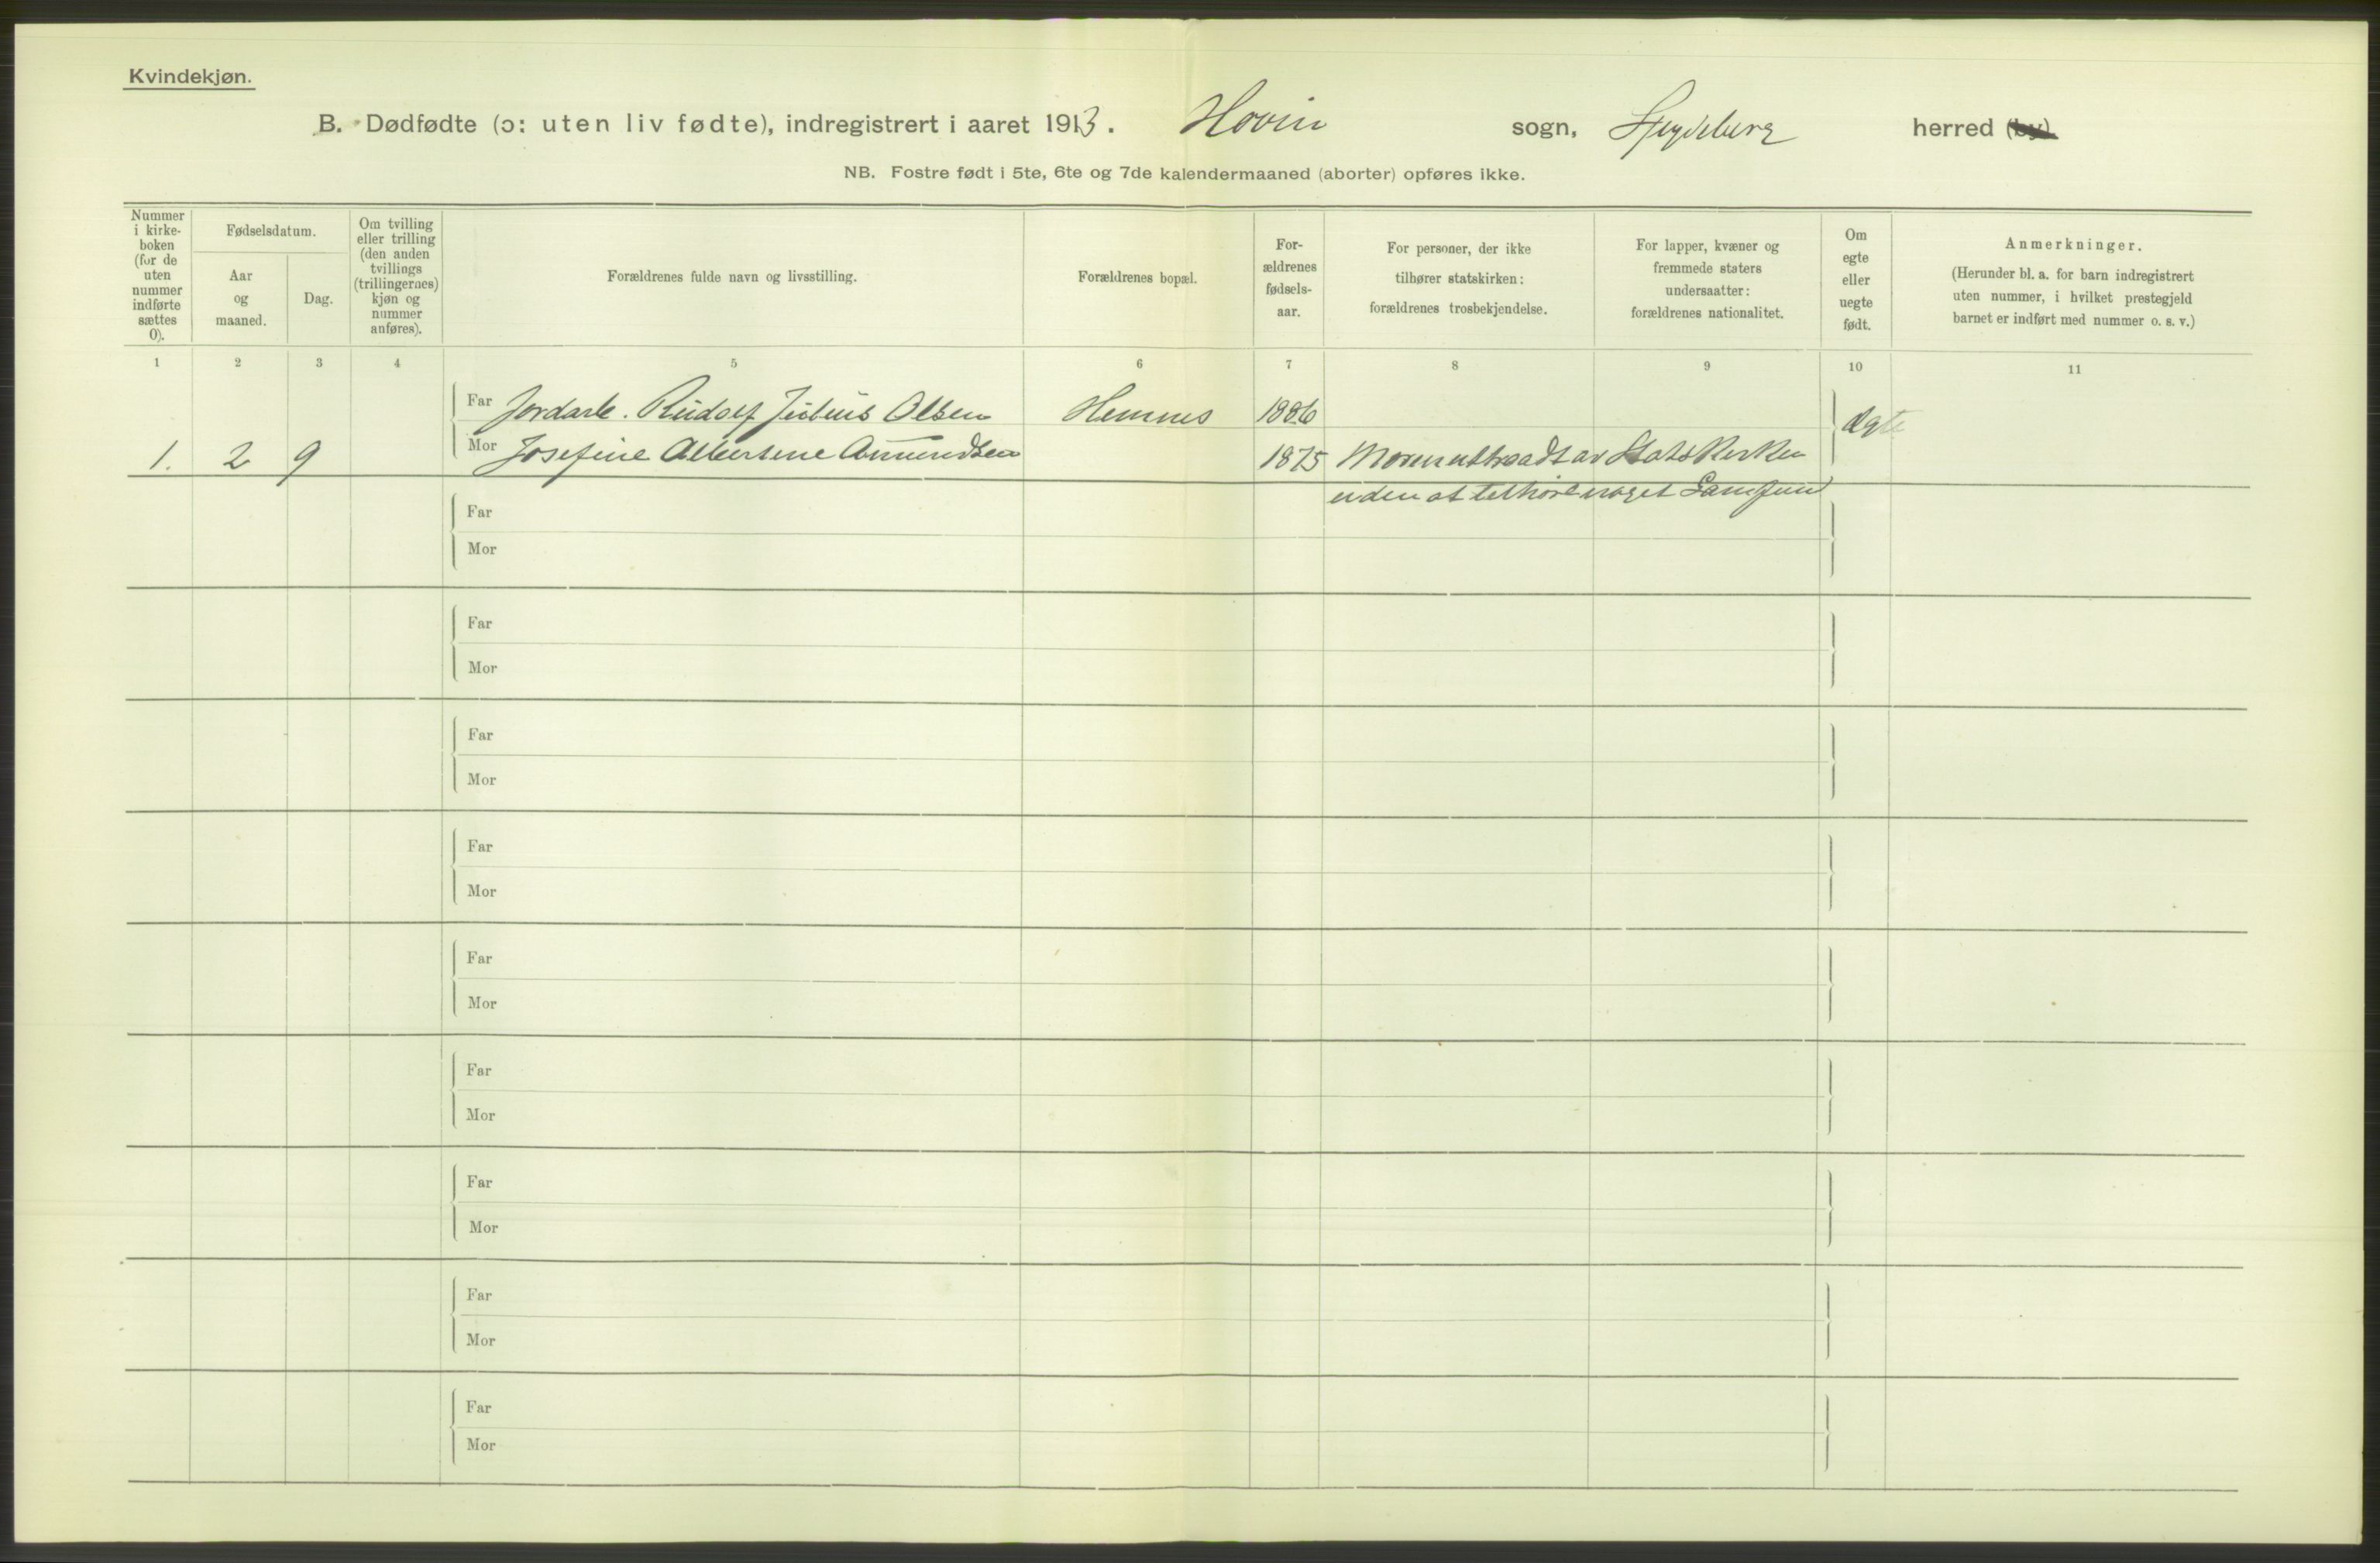 Kvindekjøn.
B. Dødfødte (ɔ: uten liv fødte), indregistrert i aaret 1913. Hovin sogn, Spydeberg herred (by)
NB. Fostre født i 5te, 6te og 7de kalendermaaned (aborter) opføres ikke.
Nummer
i kirke-
boken
(for de
uten
nummer
indførte
sættes
0).
Fødselsdatum.
Aar
og
maaned.
Dag.
Om tvilling
eller trilling
(den anden
tvillings
(trillingernes)
kjøn og
nummer
anføres).
Forældrenes fulde navn og livsstilling.
Forældrenes bopæl.
For-
ældrenes
fødsels-
aar.
For personer, der ikke
tilhører statskirken:
forældrenes trosbekjendelse.
For lapper, kvæner og
fremmede staters
undersaatter:
forældrenes nationalitet.
Om
egte
eller
uegte
født.
Anmerkninger.
(Herunder bl. a. for barn indregistrert
uten nummer, i hvilket prestegjeld
barnet er indført med nummer o. s. v.)
1 2 3 4 5 6 7 8 9 10 11
Far Jordarb. Rudolf Julius Olsen Hemnes 1886 ægte
1. 2 9 Mor Josefine Albertine Amundsen 1875 Moren uttraadt av Statskirken
uden at tilhøre noget Samfund
Far
Mor
Far
Mor
Far
Mor
Far
Mor
Far
Mor
Far
Mor
Far
Mor
Far
Mor
Far
Mor